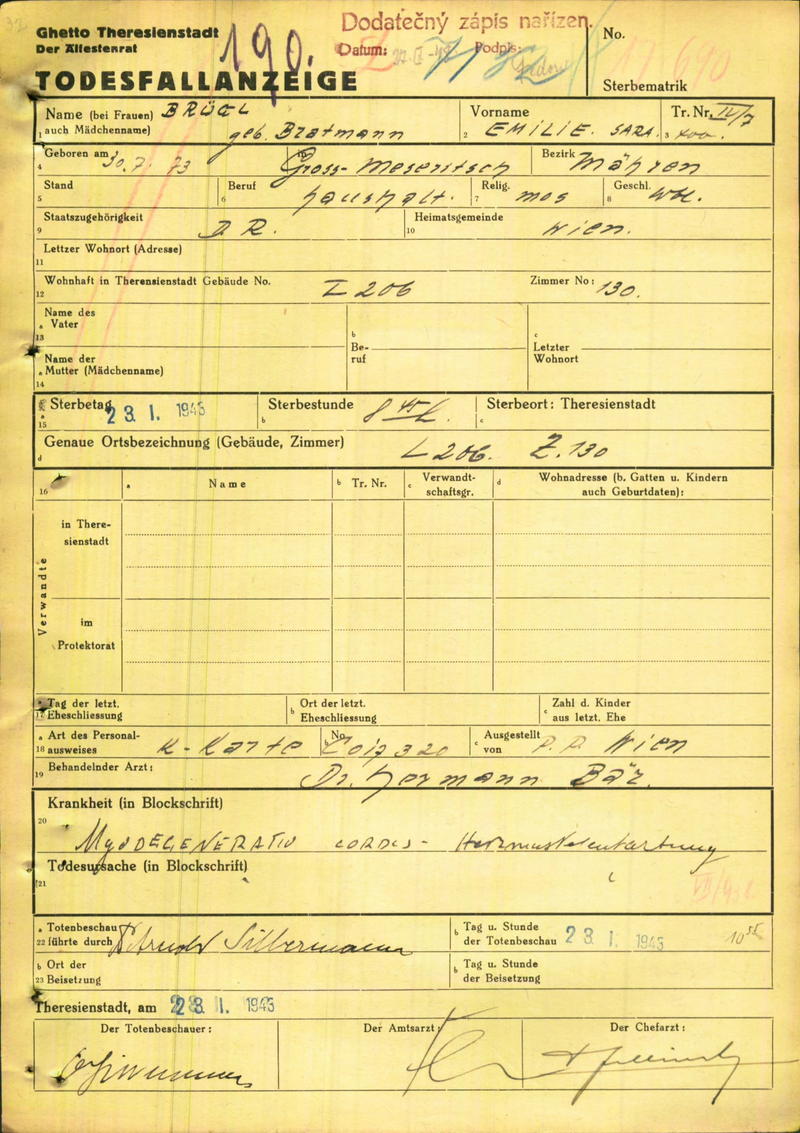 Ghetto Theresienstadt
Der Ältestenrat
190.
Dodatečný zápis nařízen.
Datum: Podpis:
No.
TODESFALLANZEIGE
Sterbematrik
Name (bei Frauen) BRÜGL
1 auch Mädchenname) geb. Bratmann
Vorname
2 EMILIE. SARA.
Tr. Nr. IV/7
3
Geboren am 30.7.73
4 Gross-Meseritsch
Bezirk Mähren
Stand
5
Beruf
6 Haushalt.
Relig.
7 mos
Geschl.
8
Staatszugehörigkeit
9 D R.
Heimatsgemeinde
10 Wien.
Lettzer Wohnort (Adresse)
11
Wohnhaft in Theresienstadt Gebäude No. L 206 Zimmer No: 130.
12
Name des
a Vater
13
b
Be-
ruf
c
Letzter
Wohnort
Name der
a Mutter (Mädchenname)
14
Sterbetag 23. I. 1943
a
15
Sterbestunde
b 8
Sterbeort: Theresienstadt
c
Genaue Ortsbezeichnung (Gebäude, Zimmer) L 206. Z. 130
d
16
a Name
b Tr. Nr.
c Verwandt-
schaftsgr.
d Wohnadresse (b. Gatten u. Kindern
auch Geburtdaten):
Verwandte
in There-
sienstadt
im
Protektorat
a Tag der letzt.
17 Eheschliessung
b Ort der letzt.
Eheschliessung
c Zahl d. Kinder
aus letzt. Ehe
a Art des Personal-
18 ausweises K-Karte
b No.
c Ausgestellt
von P.P. Wien
19 Behandelnder Arzt: Dr. Hermann Bär.
Krankheit (in Blockschrift)
20
MYODEGENERATIO CORDIS - Herzmuskelentartung
Todesursache (in Blockschrift)
21
a Totenbeschau
22 führte durch Silbermann
b Tag u. Stunde
der Totenbeschau 23. I. 1943 10
b Ort der
23 Beisetzung
b Tag u. Stunde
der Beisetzung
Theresienstadt, am 23. I. 1943
Der Totenbeschauer:
Der Amtsarzt:
Der Chefarzt: